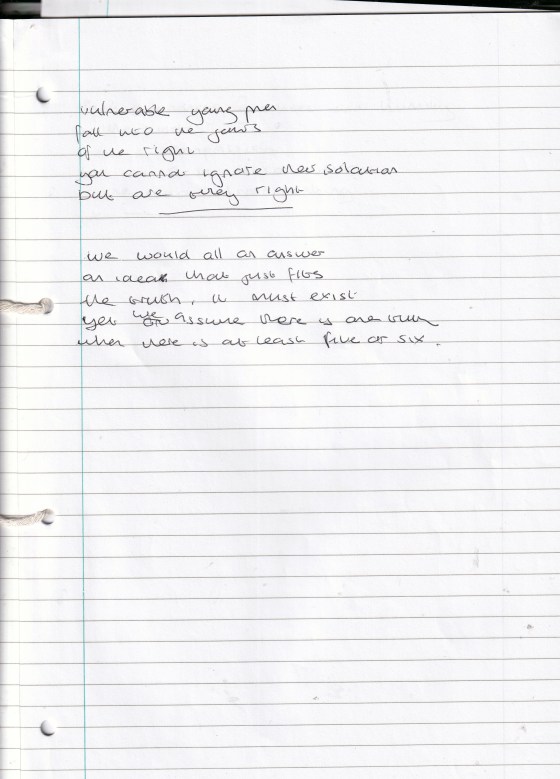 vulnerable young men
fall into the jaws
of the right
you cannot ignore their isolation
but are they right
we would all an answer
an idea that just fits
the truth, it must exist
yet we assume there is one truth
when there is at least five or six.